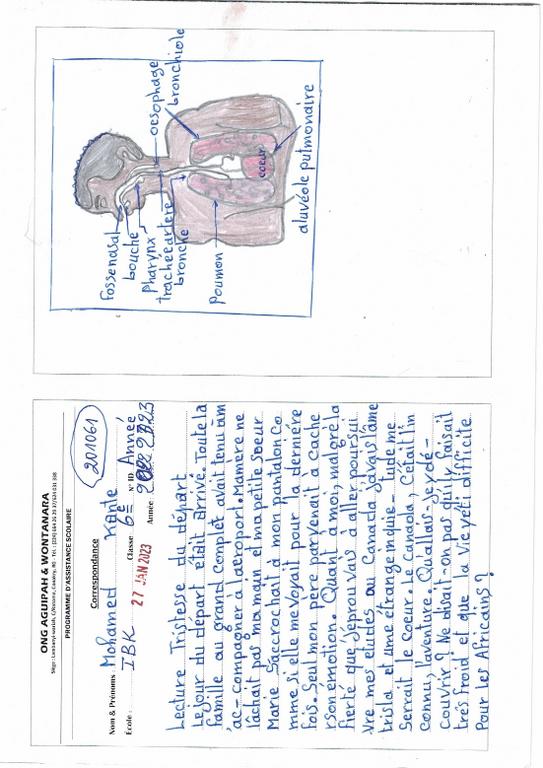 ONG AGUIPAH & WONTANARA
PROGRAMME D'ASSISTANCE SCOLAIRE
Correspondance
201061
Nom & Prénoms Mohamed Kante
Ecole: IBK Classe 6e N° ID Année
27 JAN 2023 Année:
Lecture Tristesse du départ
Le jour du départ était arrivé. Toute la
famille au grand Complet avait tenu à m
'ac-compagner à l'aeroport. Mamere ne
lâchait pas ma main et ma petite Soeur
Marie S'accrochait à mon pantalon Co
mme Si elle me Voyait pour la dernière
fois. Seul mon père parvenait à Cache
r Son émotion. Quant à moi, malgré la
fierté que J'éprouvais à aller poursui
Vre mes etudes au Canada J'avais l'âme
trista et une étrange induie- tude me
Serrait le Coeur. Le Canada, C'était l'in
Connu, l'aventure. Qu'allais-Je y dé-
couvrir? Ne disait-on pas qu'ily faisait
très froid et que la Vie yeti difficite
Pour les Africains?
Fossenasal
bouche
Pharynx
trachéeartere
bronche
Poumon
oesophage
bronchiole
coeur
aluvéole pulmonaire